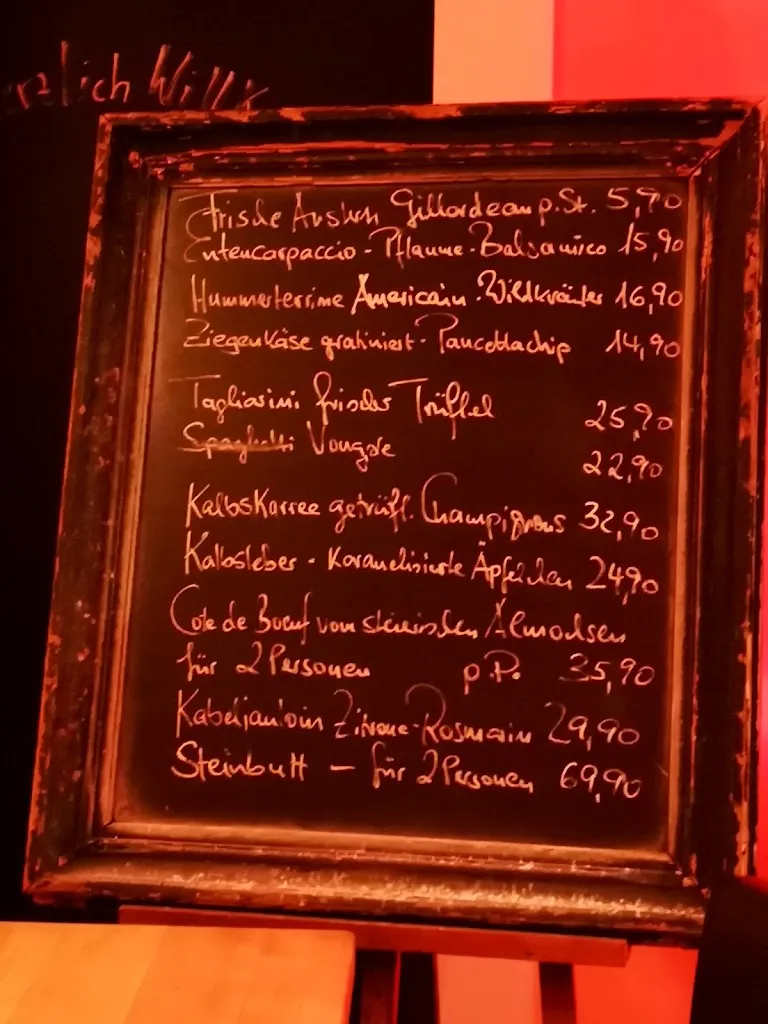 Herzlich Willk
Frische Austern Gillardeau p.St. 5,90
Entencarpaccio - Pflaume - Balsamico 15,90
Hummerterrine Americain - Wildkräuter 16,90
Ziegenkäse gratiniert - Pancettachip 14,90
Tagliarini frischer Trüffel 25,90
Spaghetti Vongole 22,90
Kalbskarree getrüff. Champignons 32,90
Kalbsleber - Karamelisierte Äpfelchen 24,90
Cote de Boeuf vom steirischen Almochsen
für 2 Personen p.P. 35,90
Kabeljauloin Zitrone-Rosmarin 29,90
Steinbutt - für 2 Personen 69,90